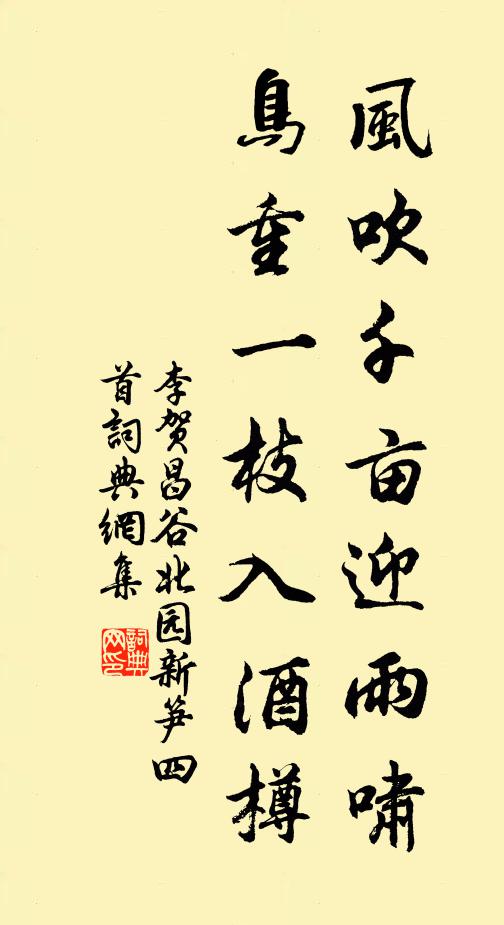 風吹千亩迎雨嘯
鳥重一枝入酒樽
李贺昌谷北园新笋四
首詞典網集
詞典网印